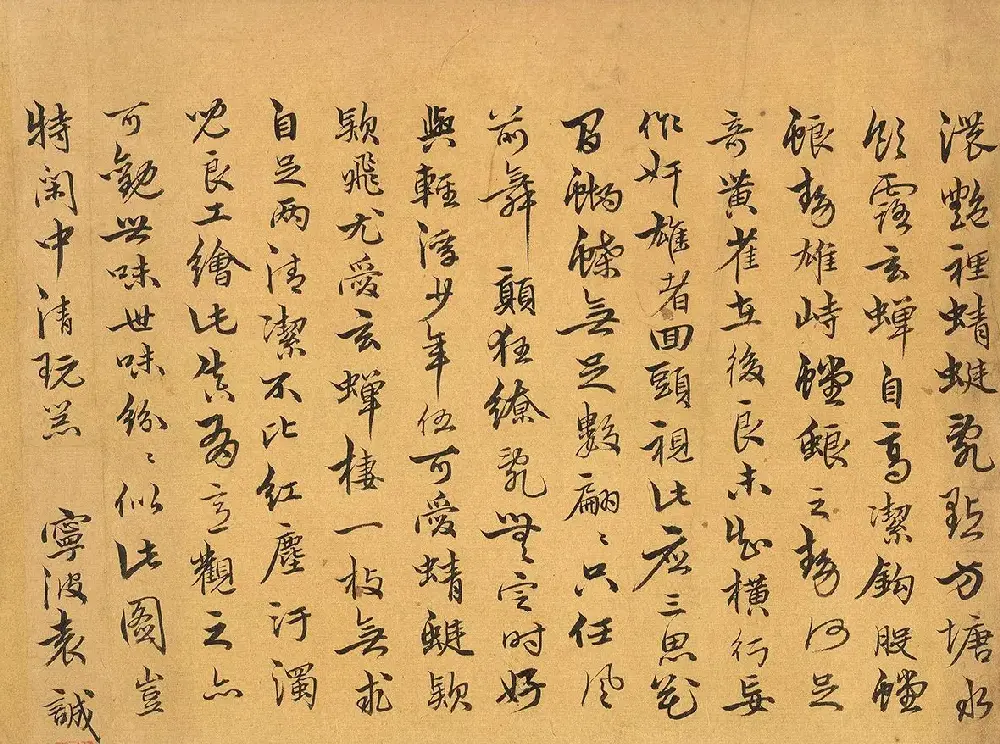 濃艷裡蜻蜓亂點方塘水
飲露玄蟬自高潔鉤股螳
螂勢雄峙螳螂之勢何足
奇黃雀在後良未知橫行妄
作奸雄者回頭視此應三思花
間蝴蝶無足數翩〻只任風
前舞顛狂繚亂無定時好
與輕浮少年伍可愛蜻蜓款
款飛尤愛玄蟬棲一枝無求
自足兩清潔不比紅塵汙濁
兒良工繪此真有意觀之亦
可世味世味紛〻似此圖豈
特閑中清玩器 寧波袁誠